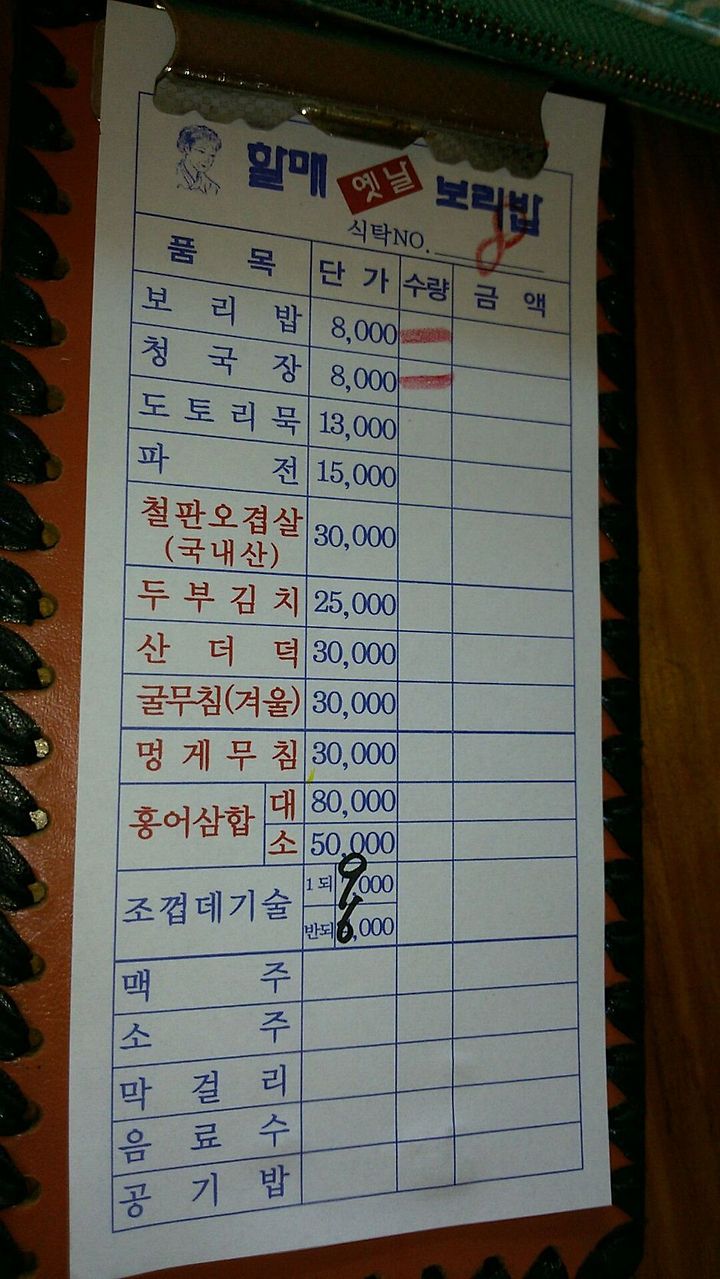 할매 옛날 보리밥
식탁NO. 8
품목 단가 수량 금액
보리밥 8,000
청국장 8,000
도토리묵 13,000
파전 15,000
철판오겹살 30,000
(국내산)
두부김치 25,000
산더덕 30,000
굴무침(겨울) 30,000
멍게무침 30,000
홍어삼합 대 80,000
소 50,000
조껍데기술 1되 9,000
반되 6,000
맥주
소주
막걸리
음료수
공기밥